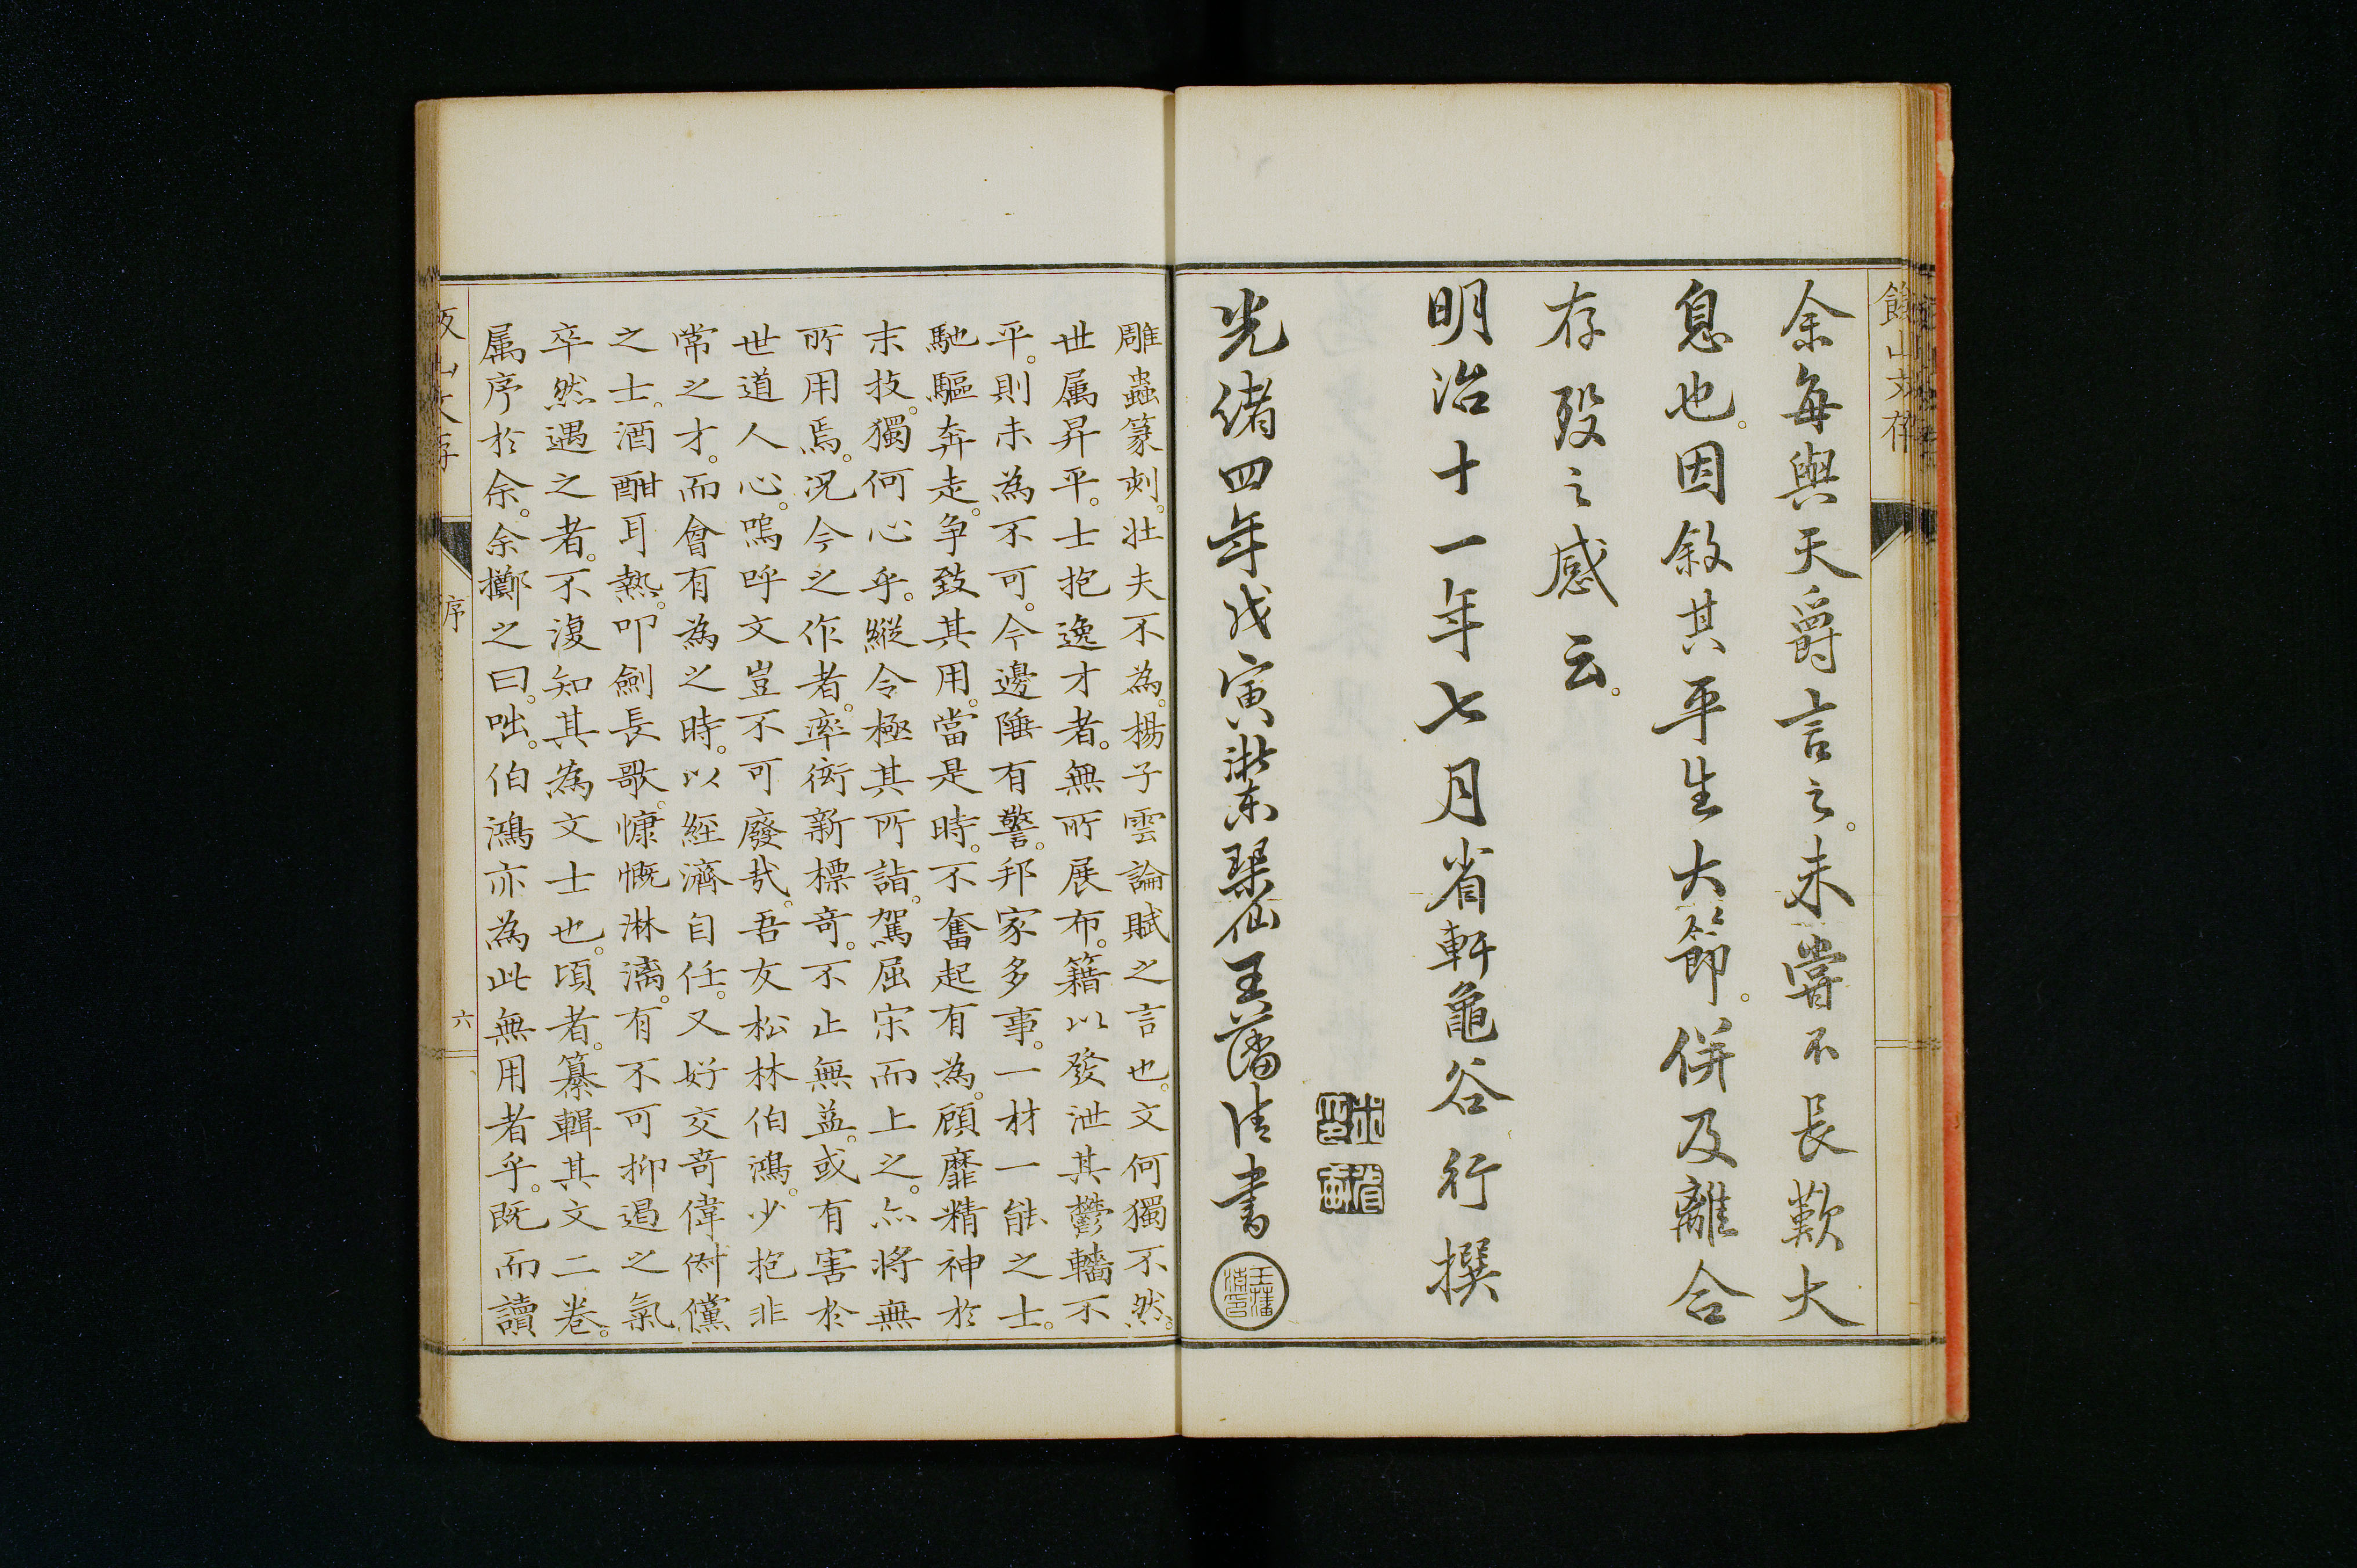 余每與天爵言之。未嘗不長歎大
息也。因敘其平生大節。併及離合
存歿之感云。
明治十一年七月省軒龜谷行撰
光緒四年戊寅浙東琹仙王藩清書
雕蟲篆刻。壯夫不為。楊子雲論賦之言也。文何獨不然。
世属昇平。士抱逸才者。無所展布。籍以發泄其鬱轖不
平。則未為不可。今邊陲有警。邦家多事。一材一能之士。
馳驅奔走。争致其用。當是時。不奮起有為。顧靡精神於
末技。獨何心乎。縱令極其所詣。駕屈宋而上之。亦將無
所用焉。况今之作者。率衒新標奇。不止無益。或有害於
世道人心。嗚呼文豈不可廢哉。吾友松林伯鴻。少抱非
常之才。而會有為之時。以經濟自任。又好交奇偉倜儻
之士。酒酣耳熱。叩劍長歌。慷慨淋漓。有不可抑遏之氣
卒然遇之者。不復知其為文士也。頃者。纂輯其文二卷。
属序於余。余擲之曰。咄。伯鴻亦為此無用者乎。既而讀
序
六